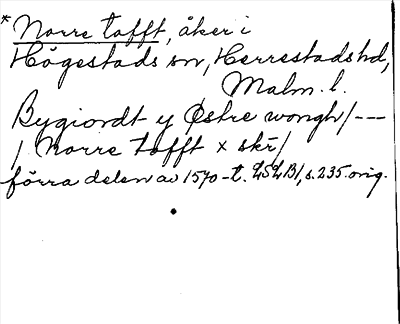 * Norre tofft, åker i
Högestads sn, Herrestads hd,
Malm. l.
Bygiordt y Østre wongh/---
/ Norre tofft × skr/
förra delen av 1570-t. LSLB1, s. 235. orig.